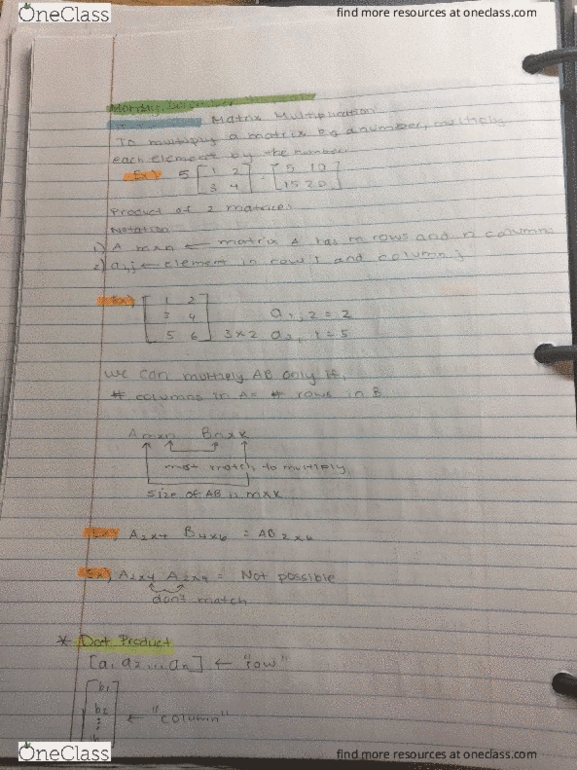 OneClass
find more resources at oneclass.com
Matrix Multiplication
To multiply a matrix by a number, multiply
each element by the number
Ex) 5 [1 2 = [5 10
3 4] 15 20]
Product of 2 matrices
Notation
1) A mxn ← matrix A has m rows and n columns
2) ai,j ← element in row i and column j
Ex) [1 2
3 4 a1,2 = 2
5 6] 3x2 a3,1=5
We can multiply AB only if,
# columns in A = # rows in B
Amxn Bnxk
must match to multiply
size of AB is mxk
Ex) A2x4 B4x6 = AB2x6
Ex) A2x4 A2x4 = Not possible
don't match
* Dot Product
[a1 a2 ... an] ← "row"
[b1
b2
⋮ ← "column"
OneClass
find more resources at oneclass.com